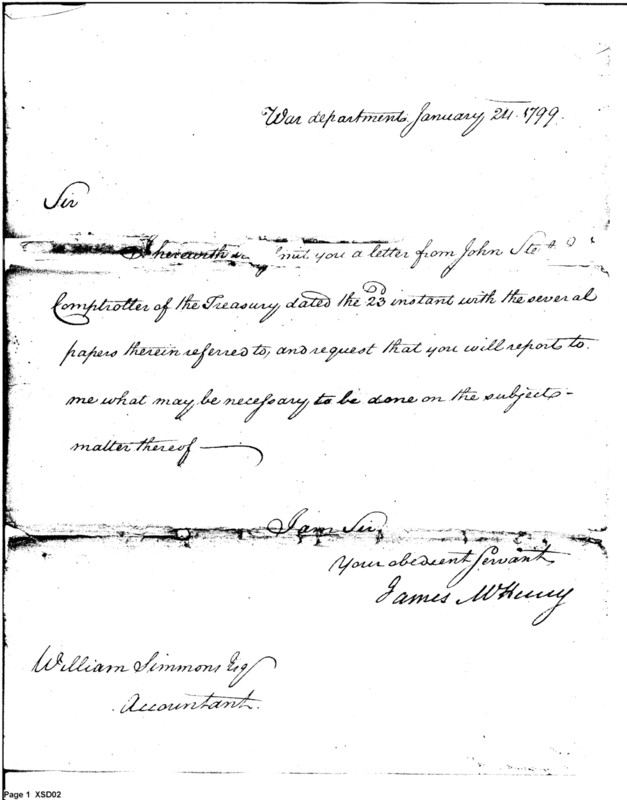 War department January 24. 1799.
Sir
I herewith you a letter from John
Comptroller of the Treasury dated the 23d instant with the several
papers therein referred to, and request that you will report to
me what may be necessary to be done on the subject-
matter thereof
I am Sir,
Your obedient Servant
James McHenry
William Simmons Esq
Accountant.
Page 1 XSD02